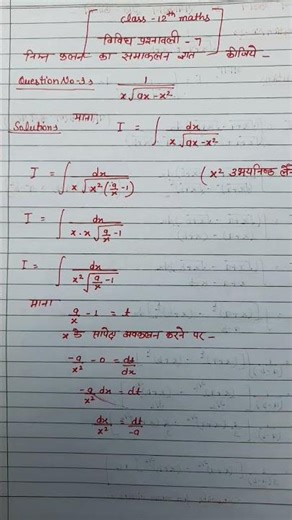 class - 12th maths
विविध प्रश्नावली - 7
निम्न फलन का समाकलन ज्ञात कीजिये -
Question No-3: 1/(x√(ax-x²))
Solution: माना I = ∫ dx/(x√(ax-x²))
I = ∫ dx/(x√(x²(a/x -1))) (x² उभयनिष्ठ लेने
I = ∫ dx/(x.x√(a/x -1))
I = ∫ dx/(x²√(a/x -1))
माना
a/x - 1 = t
x के सापेक्ष अवकलन करने पर -
-a/x² - 0 = dt/dx
-a/x² dx = dt
dx/x² = dt/-a